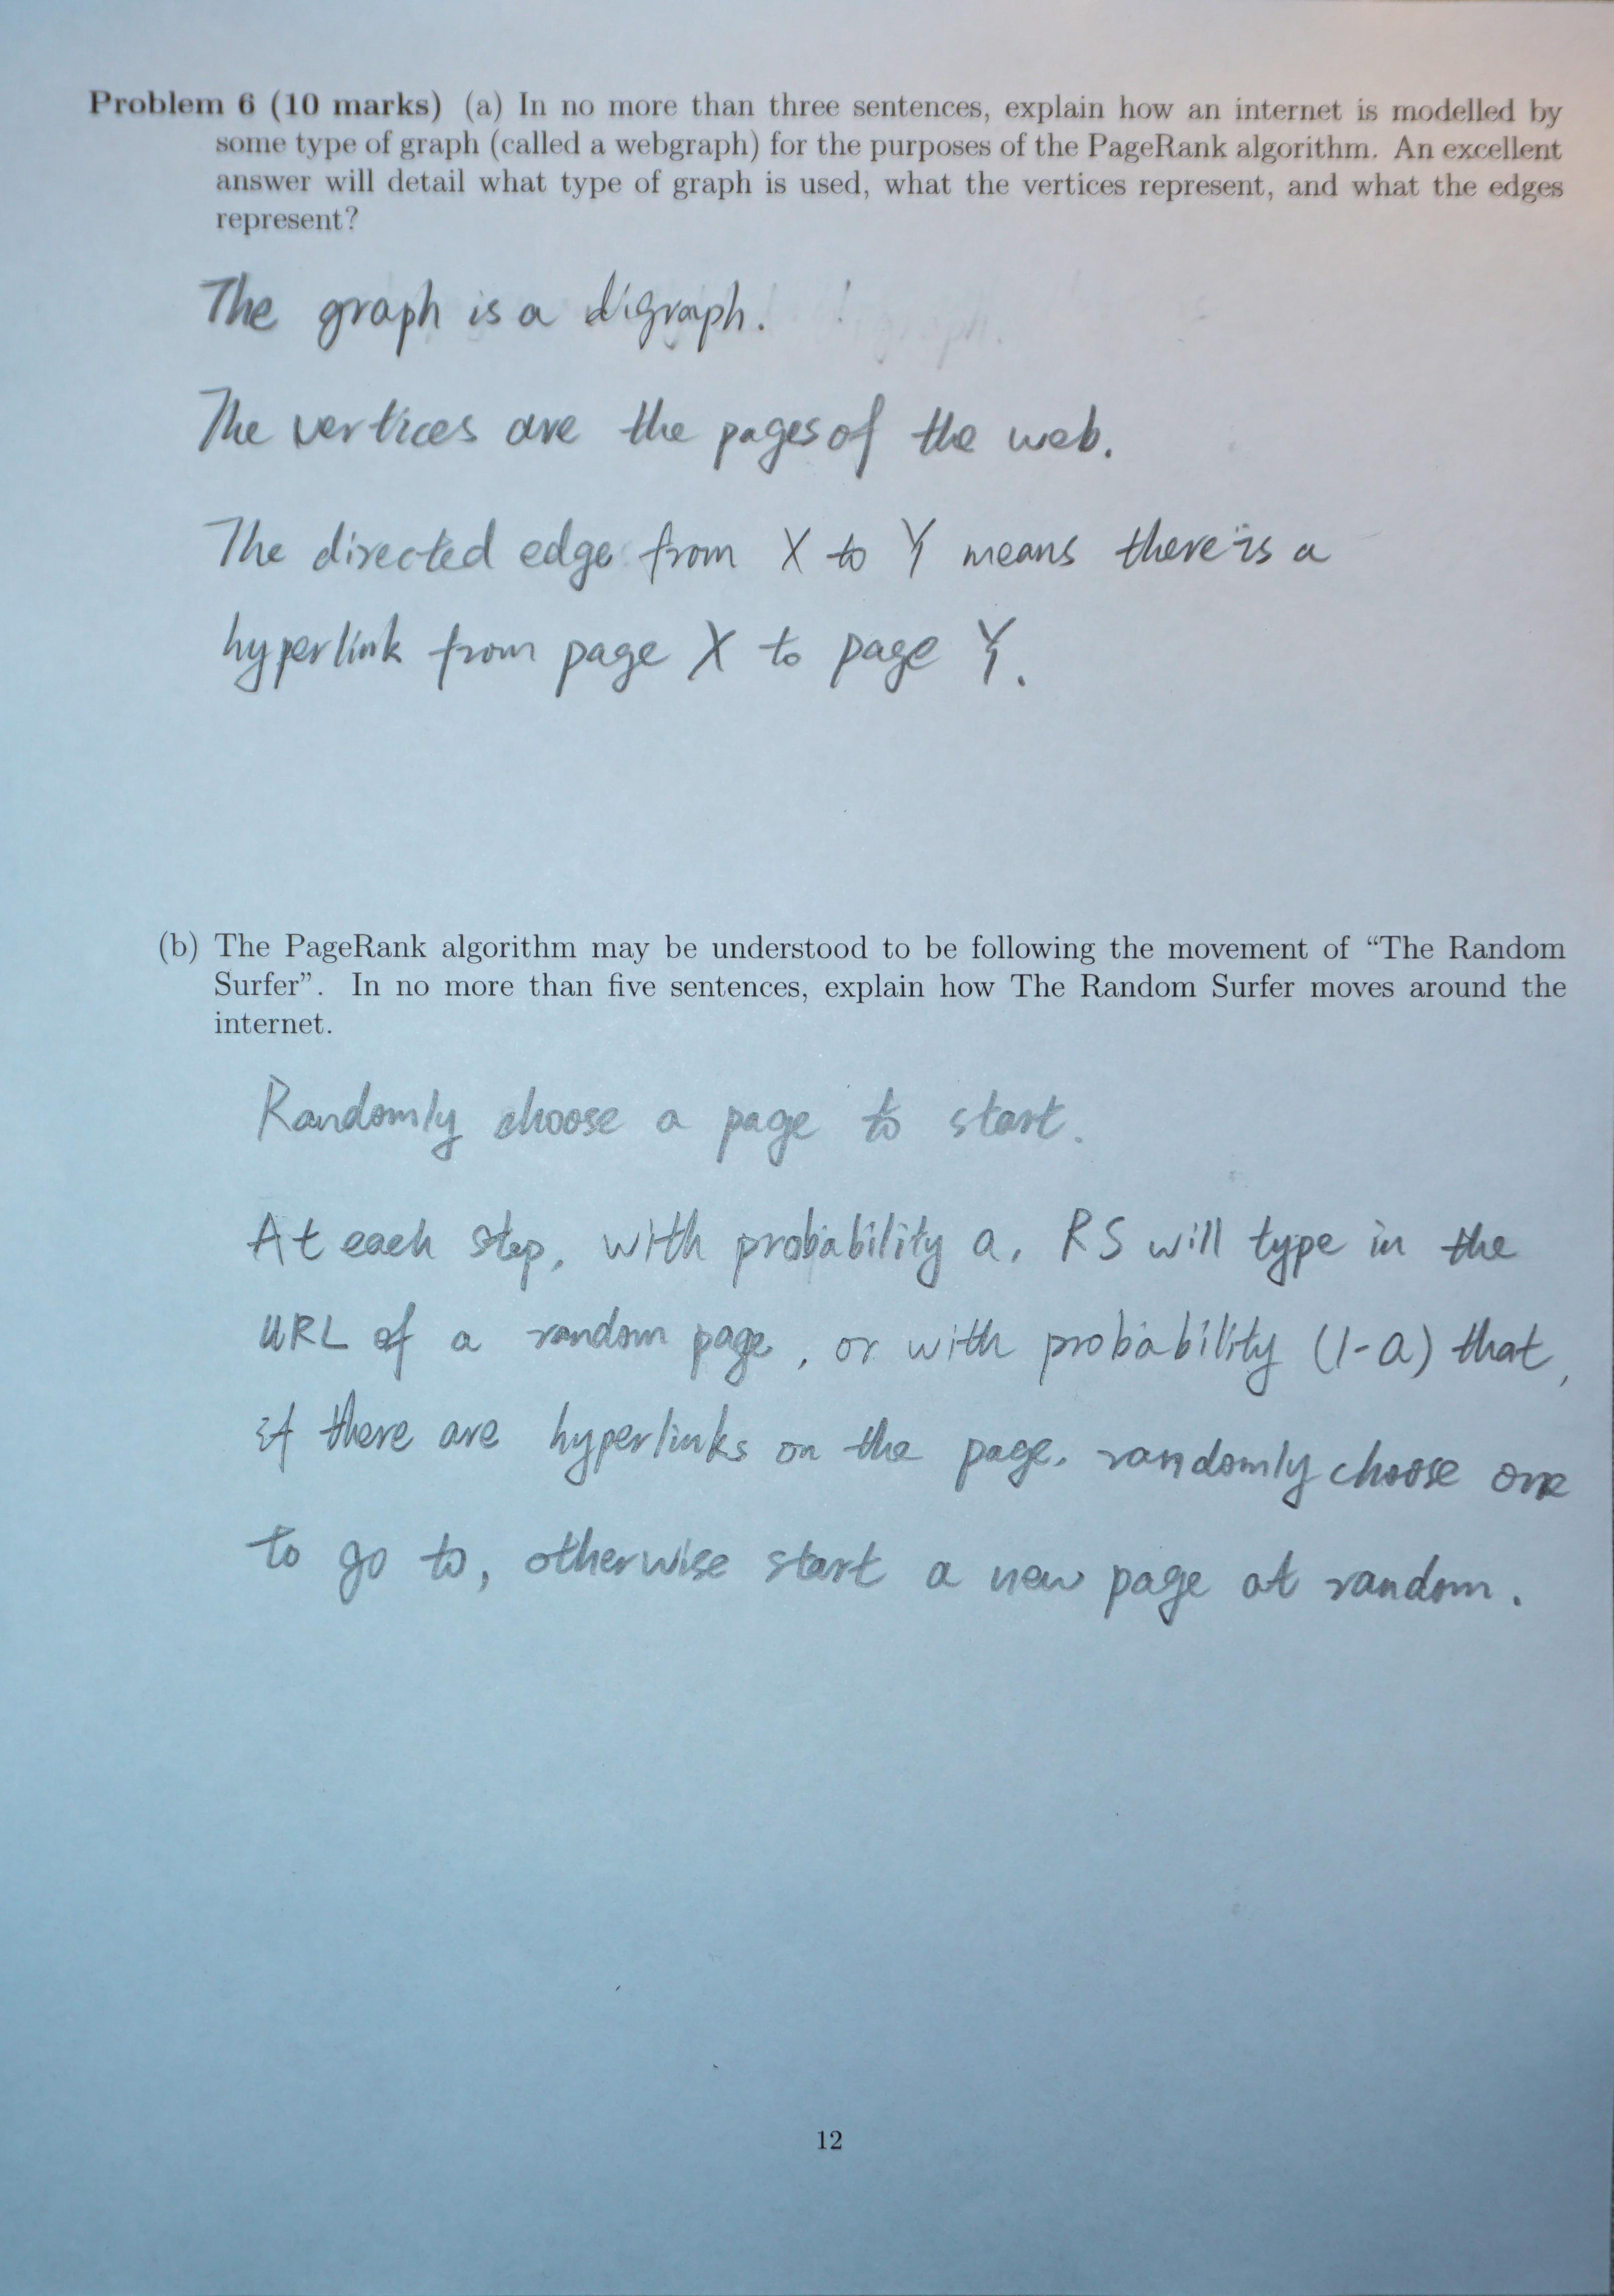 Problem 6 (10 marks) (a) In no more than three sentences, explain how an internet is modelled by
some type of graph (called a webgraph) for the purposes of the PageRank algorithm. An excellent
answer will detail what type of graph is used, what the vertices represent, and what the edges
represent?
The graph is a digraph.
The vertices are the pages of the web.
The directed edge from X to Y means there is a
hyperlink from page X to page Y.
(b) The PageRank algorithm may be understood to be following the movement of “The Random
Surfer”. In no more than five sentences, explain how The Random Surfer moves around the
internet.
Randomly choose a page to start.
At each step, with probability a, RS will type in the
URL of a random page, or with probability (1-a) that,
if there are hyperlinks on the page, randomly choose one
to go to, otherwise start a new page at random.
12